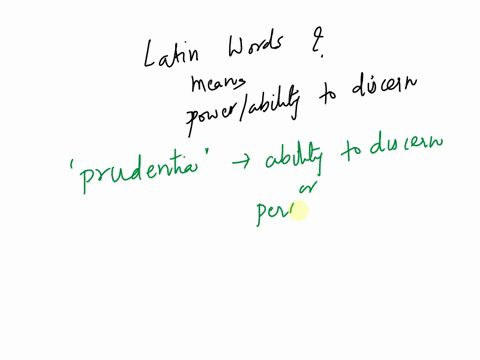 Latin Words ?
means
power/ability to discern
'prudentia' → ability to discern
or
peri